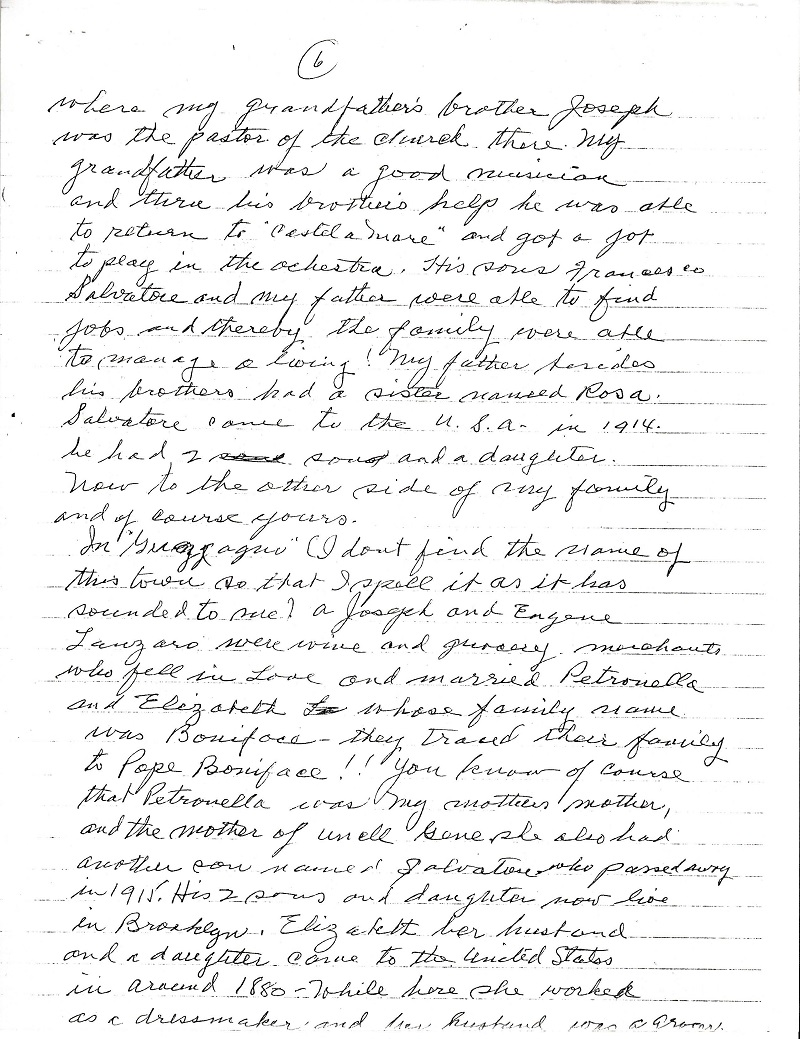 6
where my grandfather's brother Joseph
was the pastor of the church there. My
grandfather was a good musician
and thru his brothers help he was able
to return to "Castel a Mare" and got a job
to play in the ochestra. His sons Francesco
Salvatore and my father were able to find
jobs and thereby the family were able
to manage a living! My father besides
his brothers had a sister named Rosa.
Salvatore came to the U.S.A. in 1914.
he had 2 sons and a daughter.
Now to the other side of my family
and of course yours.
In (I dont find the name of
this town so that I spell it as it has
sounded to me) a Joseph and Eugene
Lanzaro were wine and grocery merchants
who fell in Love and married Petronella
and Elizabeth whose family name
was Boniface - they traced their family
to Pope Boniface!! You know of course
that Petronella was my mothers mother,
and the mother of uncle Gene she also had
another son named Salvatore who passed away
in 1915. His 2 sons and daughter now live
in Brooklyn. Elizabeth her husband
and a daughter came to the United States
in around 1880 - While here she worked
as a dressmaker and her husband was a